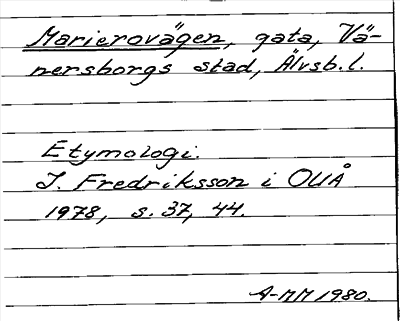 Marierovägen, gata, Vä-
nersborgs stad, Älvsb. l.
Etymologi.
I. Fredriksson i OUÅ
1978, s. 37, 44.
A-MM 1980.